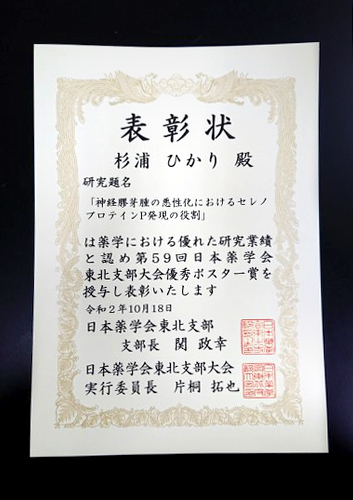 表彰状
杉浦 ひかり 殿
研究題名
「神経膠芽腫の悪性化におけるセレノ
プロテインP発現の役割」
は薬学における優れた研究業績
と認め第59回日本薬学会
東北支部大会優秀ポスター賞を
授与し表彰いたします
令和2年10月18日
日本薬学会東北支部
支部長 関 政幸
日本薬学会東北支部大会
実行委員長 片桐 拓也